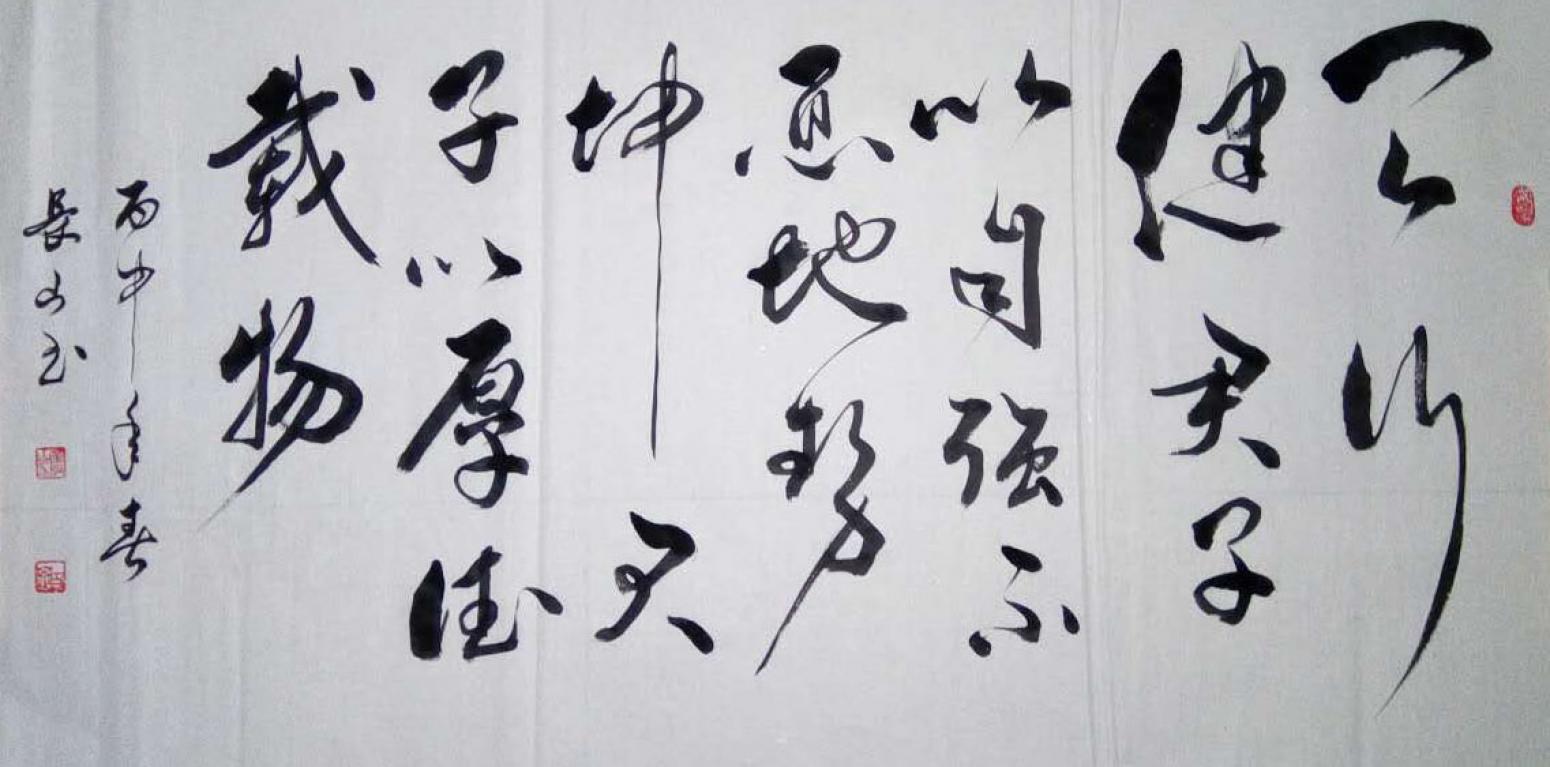 天行
健君子
以自强不
息地勢
坤君
子以厚德
載物
丙申年春
長